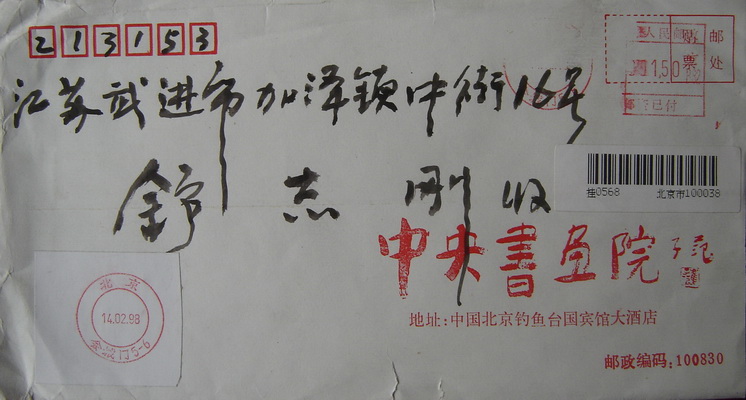 213153
邮票处
人民邮政
1.50
已付
江苏武进市加泽镇中街16号
舒志刚收
挂0568 北京市100038
中央书画院
子范
地址:中国北京钓鱼台国宾馆大酒店
邮政编码:100830
北京
14.02.98
5-6